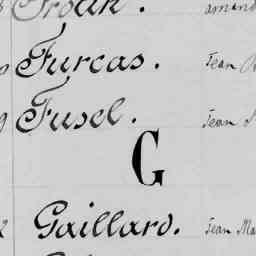 Furcas. Jean
Fusel. Jean
G
Gaillard. Jean Ma